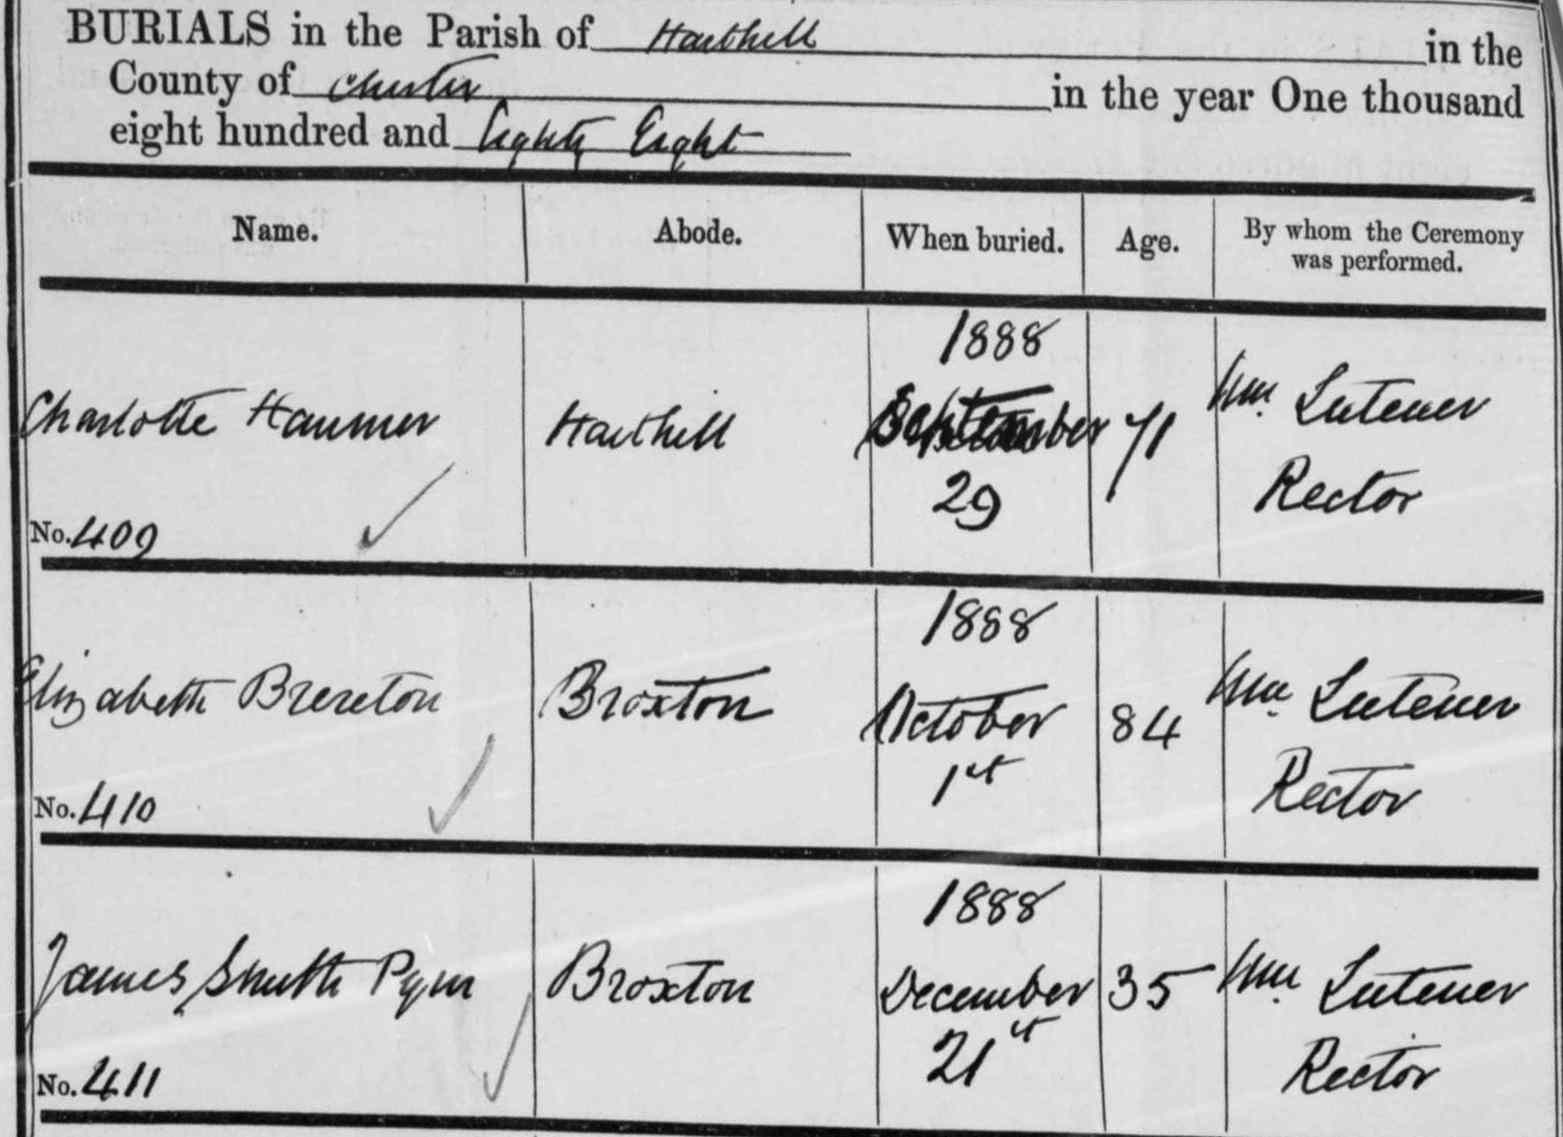 BURIALS in the Parish of Harthill in the
County of Chester in the year One thousand
eight hundred and Eighty Eight
Name. Abode. When buried. Age. By whom the Ceremony was performed.
1888
Charlotte Hanmer Harthill September 71 Wm. Lutener
29 Rector
No. 409
1888
Elizabeth Brereton Broxton October 84 Wm. Lutener
1st Rector
No. 410
1888
James Smith Pym Broxton December 35 Wm. Lutener
21st Rector
No. 411